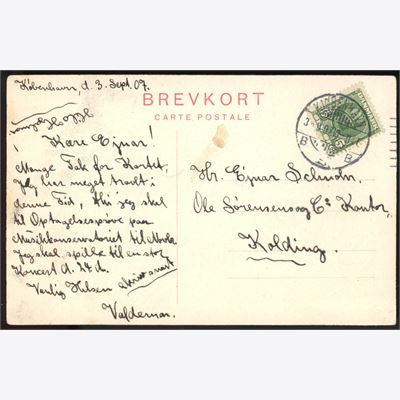 København, d. 3 Sept. 09.
BREVKORT
CARTE POSTALE
Kære Ejnar!
Mange Tak for Kortet,
Jeg har meget travlt i
denne Tid, thi jeg skal
til Optagelsesprøve paa
Musikkonservatoriet til
Jeg skal spille til en stor
Koncert d. 24 d.
Venlig Hilsen skriv snart
Valdemar.
Hr. Ejnar
Ole Sørensens og Co Kontor,
Kolding.
B B